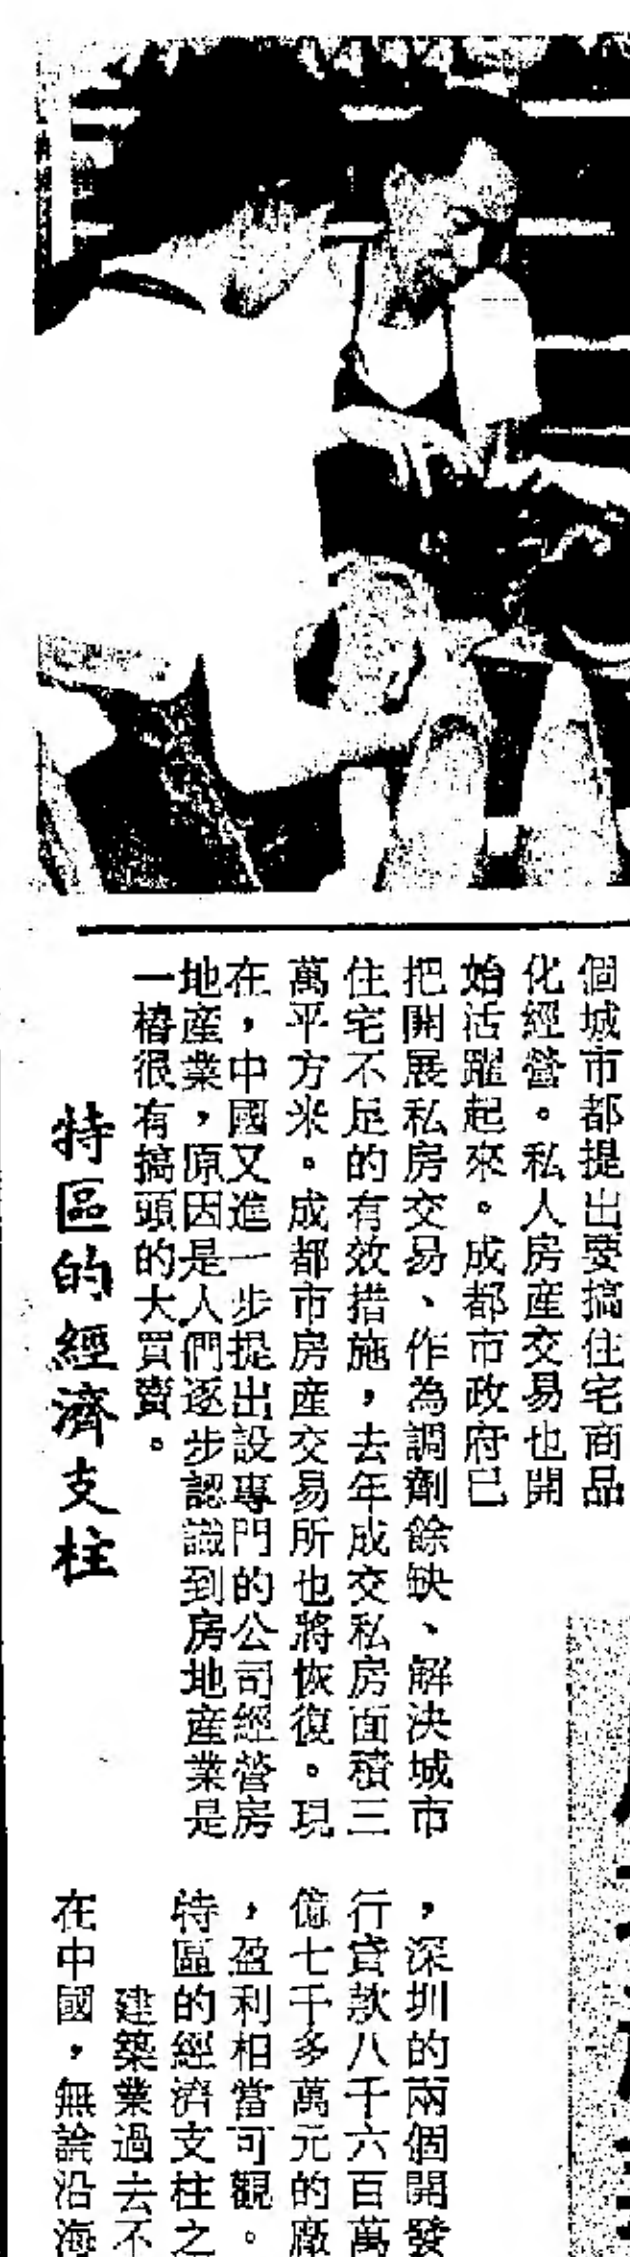 個城市都提出要搞住宅商品
化經營。私人房產交易也開
始活躍起來。成都市政府已
把開展私房交易、作為調劑餘缺、解決城市
住宅不足的有效措施，去年成交私房面積三
萬平方米。成都市房產交易所也將恢復。現
在，中國又進一步提出設專門的公司經營房
地產業，原因是人們逐步認識到房地產業是
一樁很有搞頭的大買賣。
特區的經濟支柱
，深圳的兩個開發
行貸款八千六百萬
億七千多萬元的廠
，盈利相當可觀。
特區的經濟支柱之
建築業過去不
在中國，無論沿海